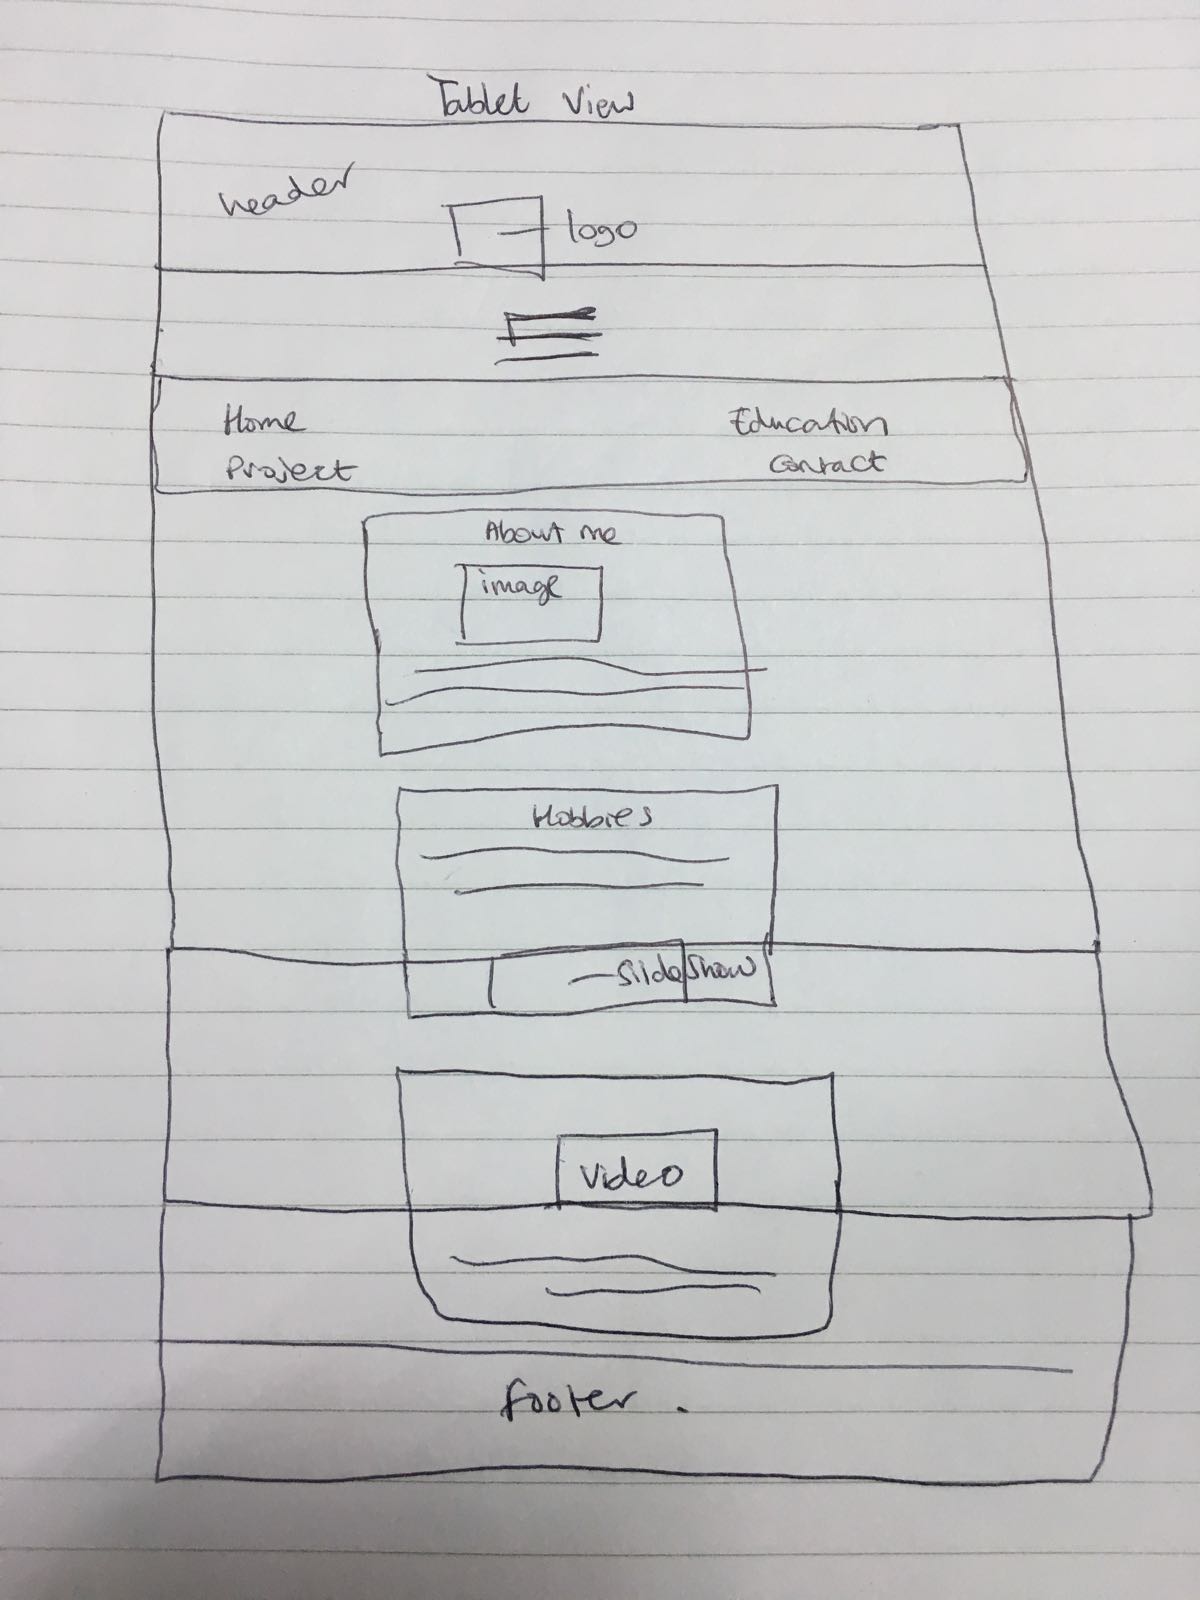 Tablet View
header
logo
Home Education
Project Contact
About me
image
Hobbies
Slide Show
Video
footer.